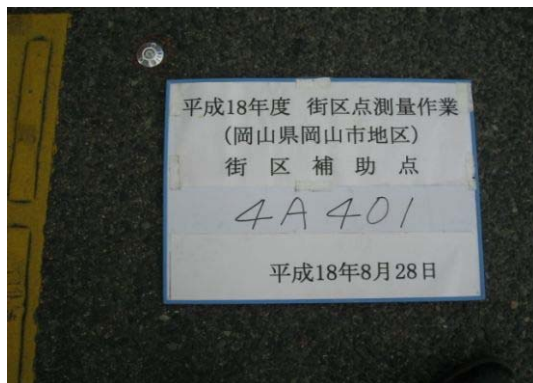 平成18年度 街区点測量作業
(岡山県岡山市地区)
街区補助点
4A401
平成18年8月28日